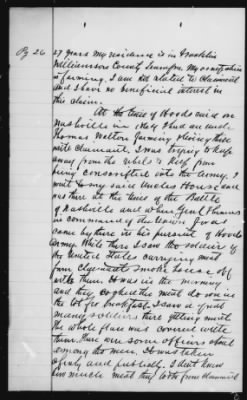 Pg 26
27 years My residence is in Franklin
Williamson County Tennessee. My occupation
is farming. I am not related to Claimant
and I have no beneficial interest in
this claim.
At the time of Hoods raid on
Nashville in 1864 I had an uncle
Thomas Walton farming & living there
with claimant. I was trying to keep
away from the rebels to keep from
being conscripted into the Army. I
went to my said Uncles House and
was there at the time of the Battle
of Nashville and when Genl Thomas
in command of the Union forces
came by there in his pursuit of Hoods
Army. While there I saw the soldiers of
the United States carrying meat
from claimants smoke house off
with them. It was in the morning
and they cooked the meat down in
the lot for breakfast. I saw a great
many soldiers there getting meat
the whole place was covered with
them. There were some officers about
among the men. It was taken
openly and publicly. I don't know
how much meat they took from claimant